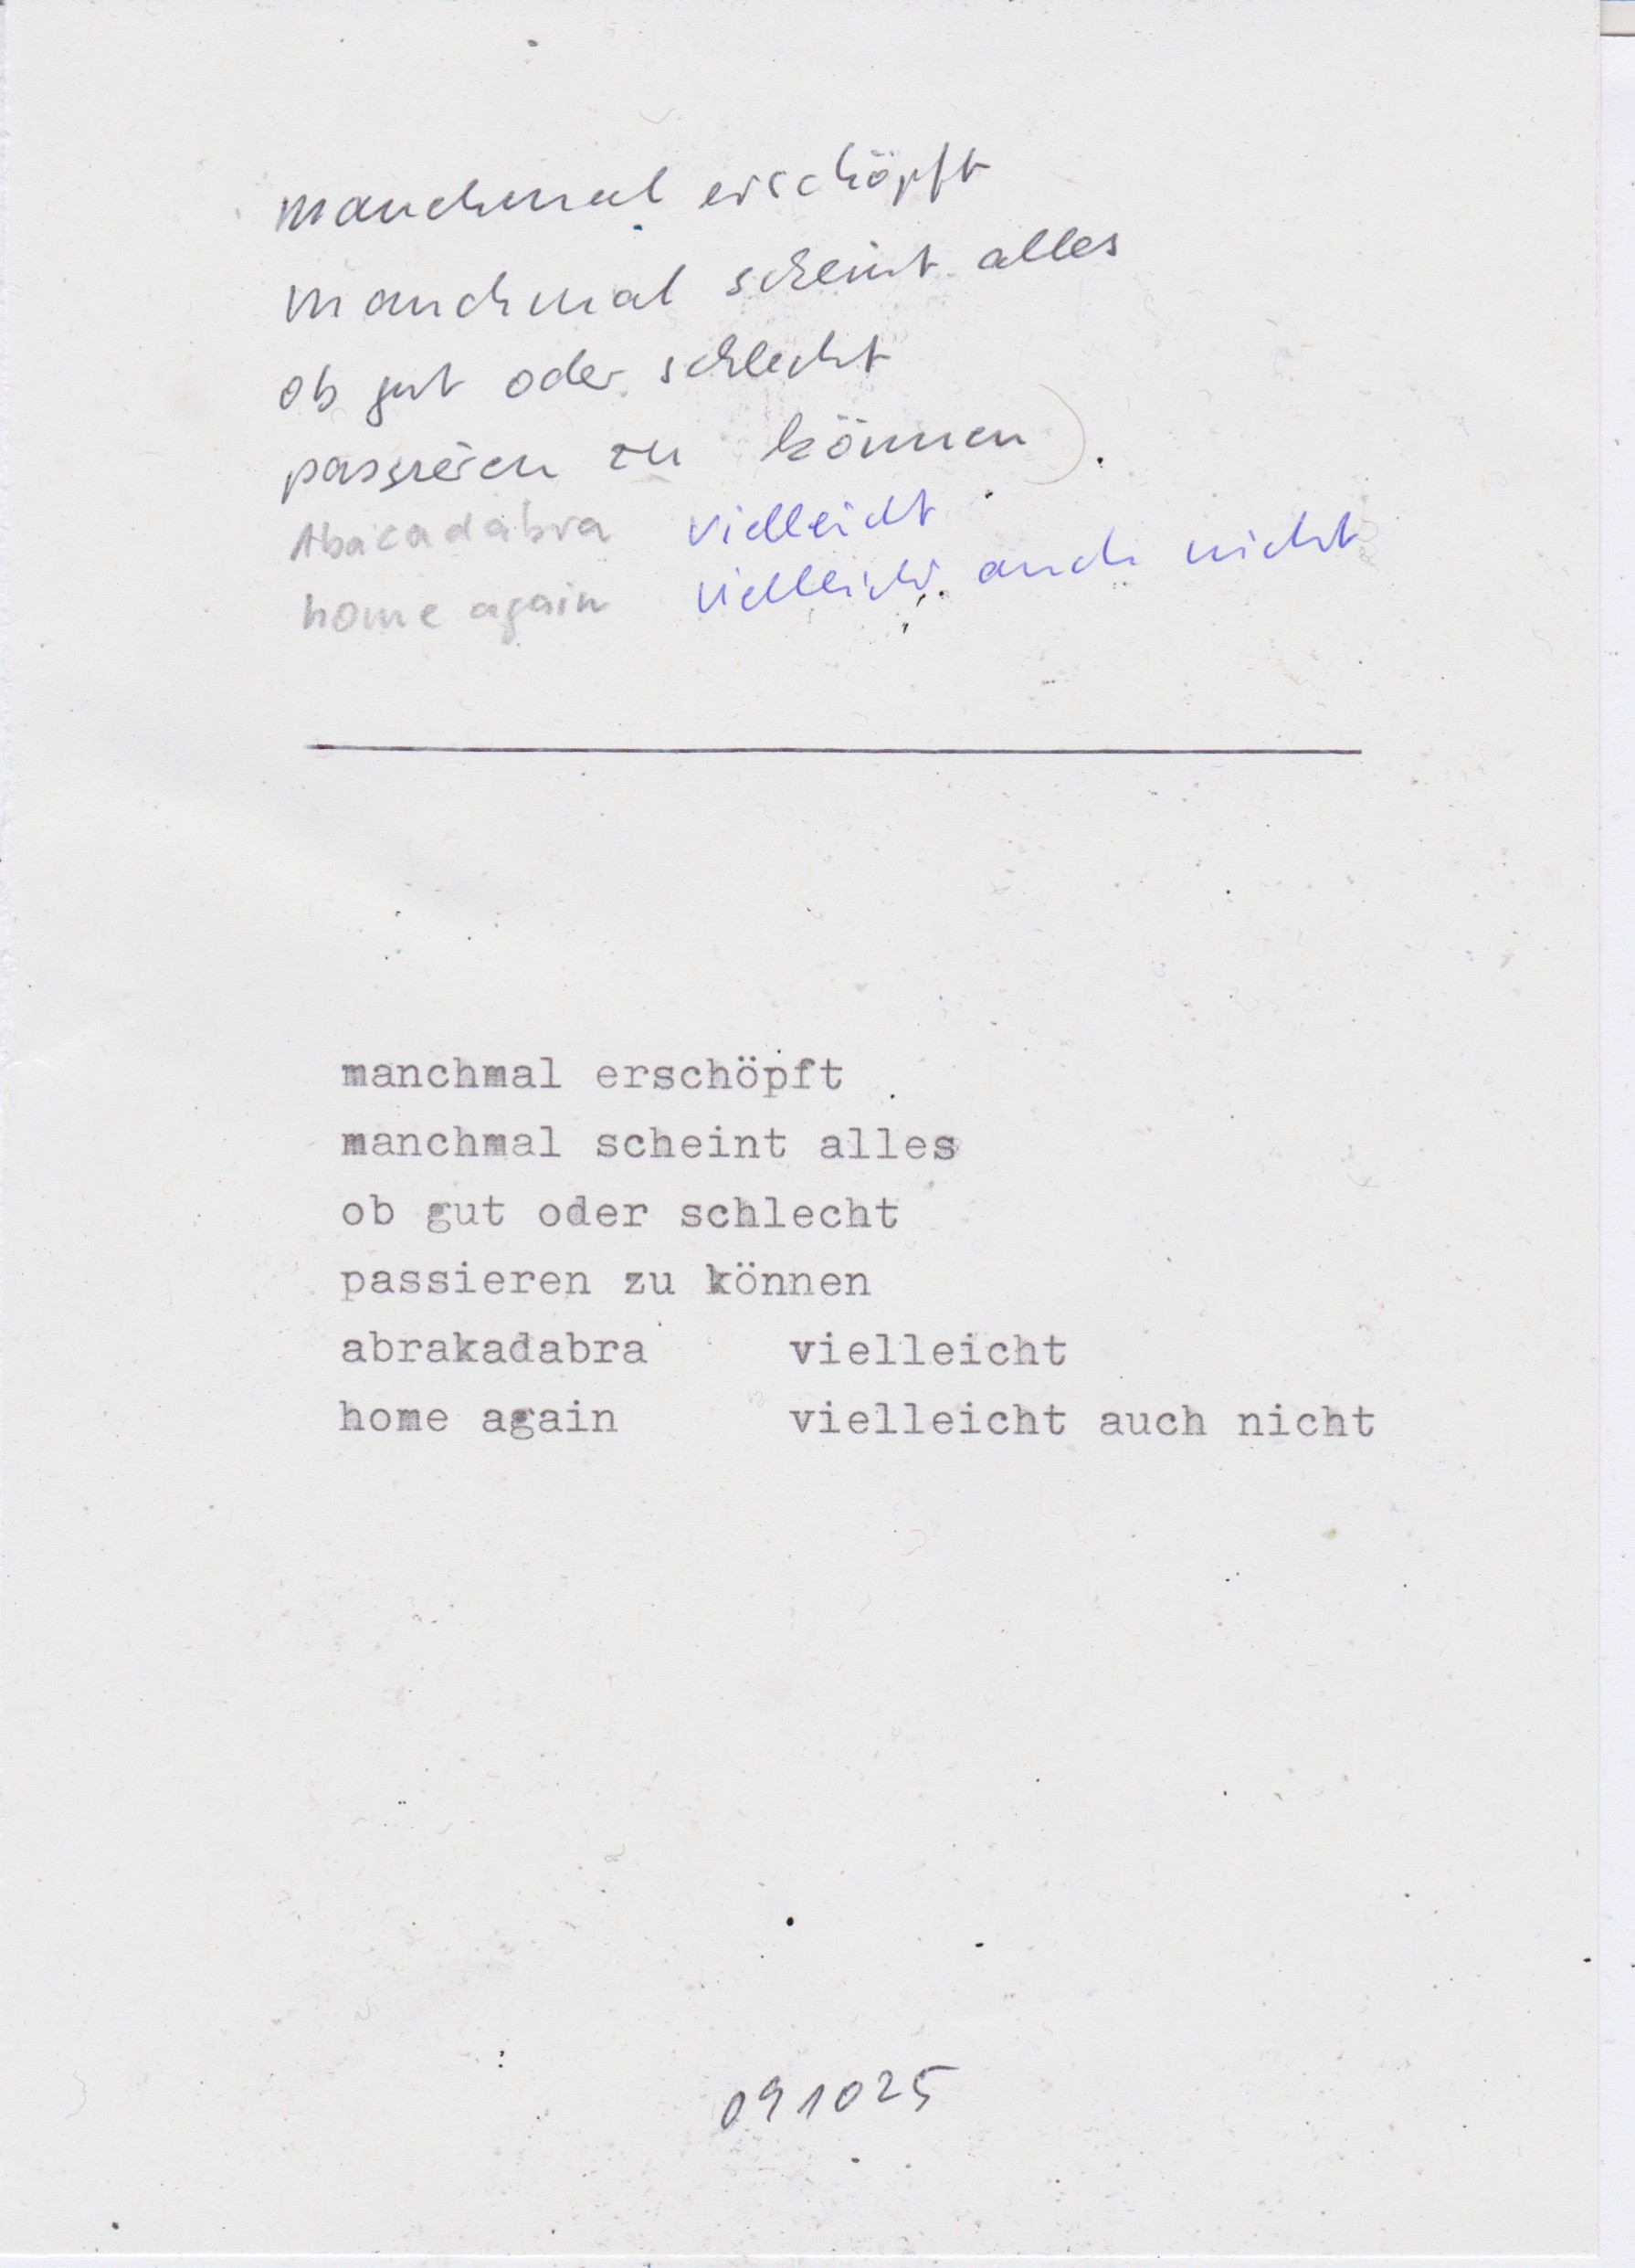 manchmal erschöpft
manchmal scheint alles
ob gut oder schlecht
passieren zu können
Abacadabra vielleicht
home again vielleicht auch nicht
manchmal erschöpft
manchmal scheint alles
ob gut oder schlecht
passieren zu können
abrakadabra vielleicht
home again vielleicht auch nicht
091025